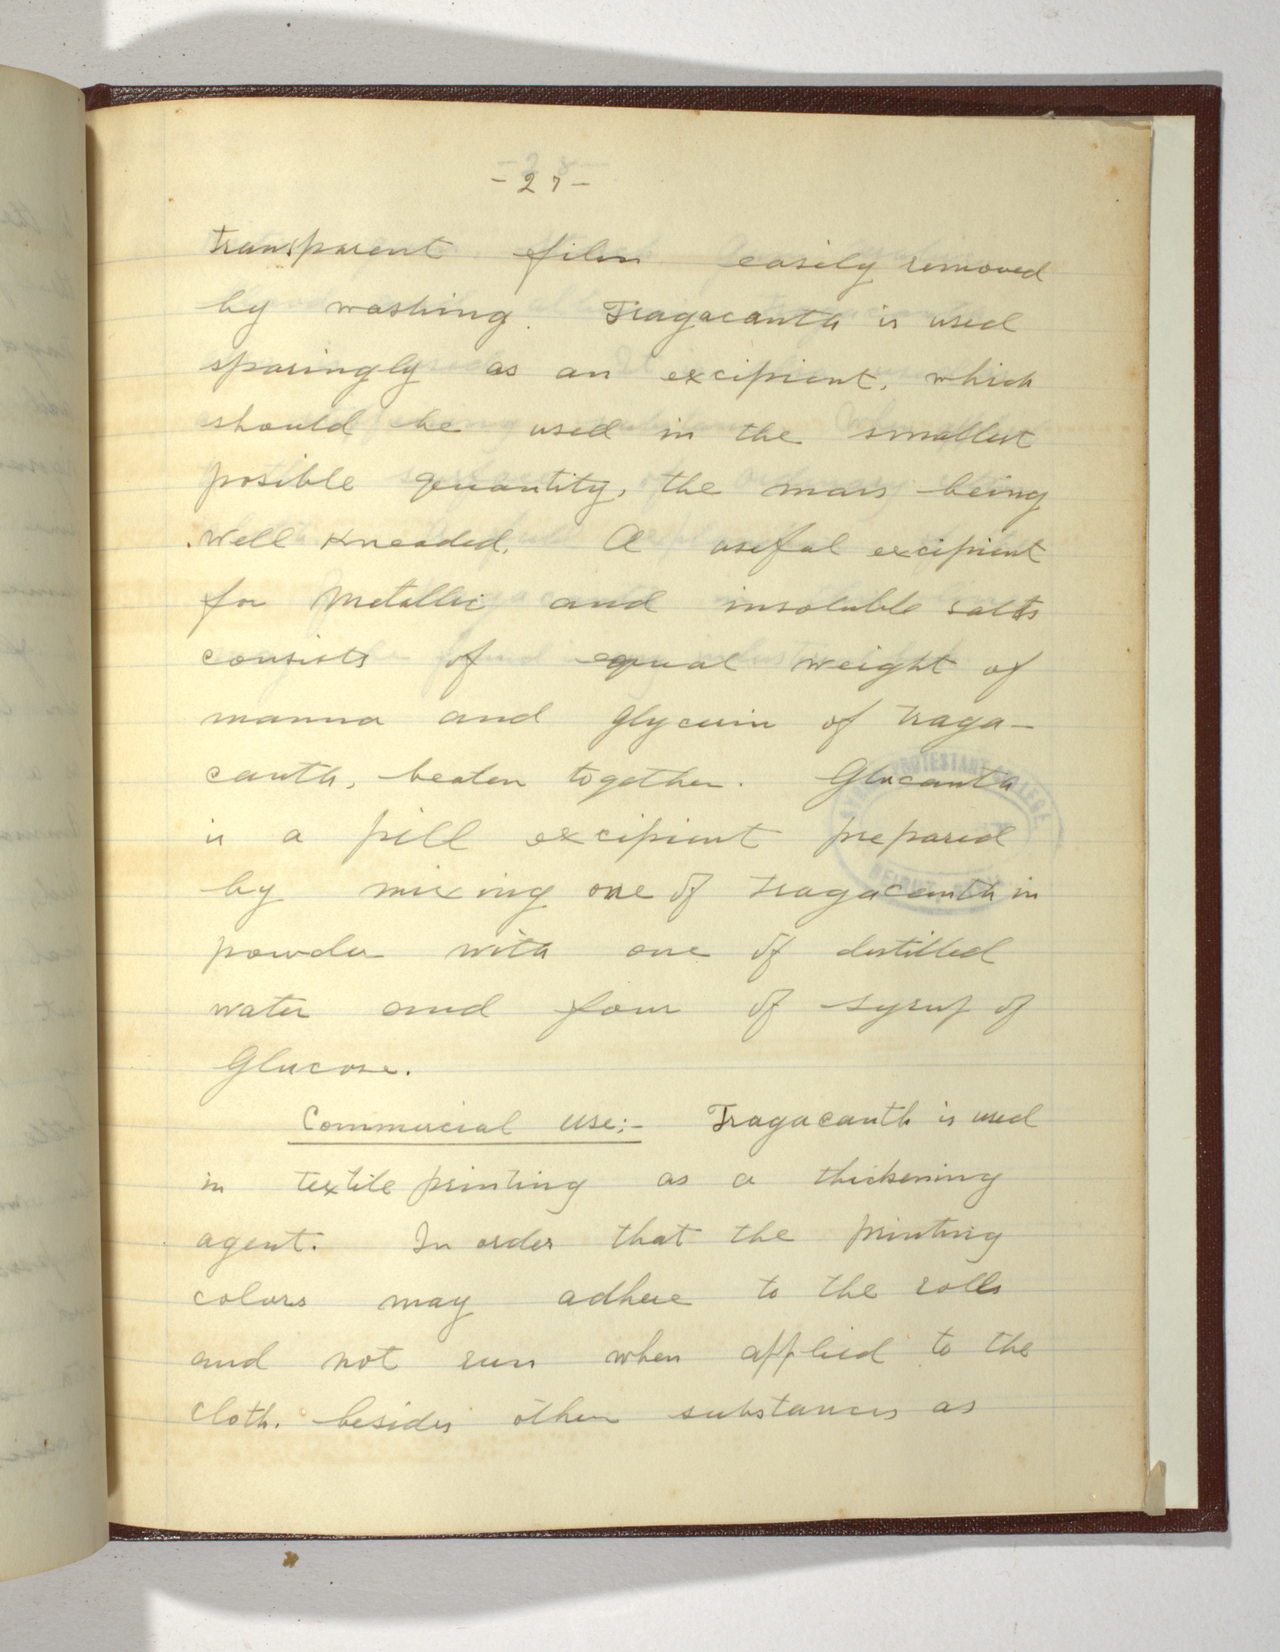 - 27 -
transparent film easily removed
by washing. Tragacanth is used
sparingly as an excipient, which
should be used in the smallest
posible quantity, the mass being
well kneaded. A useful excipient
for Metallic and insoluble salts
consists of equal weight of
manna and glycerin of traga-
canth, beaten together. Glucanta
is a pill excipient prepared
by mixing one of tragacanth in
powder with one of distilled
water and four of syrup of
Glucose.
Commercial use:- Tragacanth is used
in textile printing as a thickening
agent. In order that the printing
colors may adhere to the rolls
and not run when applied to the
cloth. besides other substances as
PROTESTANT COLLEGE
BEIRUT